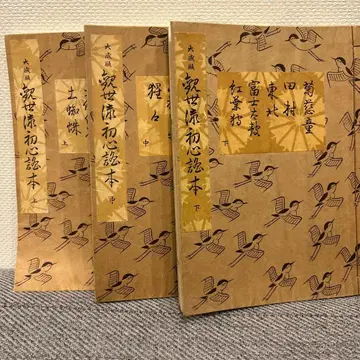 菊慈童
田村
東北
富士太鼓
紅葉狩
下
大成版 觀世流初心謠本 下
猩々
中
大成版 觀世流初心謠本 中
土蜘蛛
上
大成版 觀世流初心謠本 上